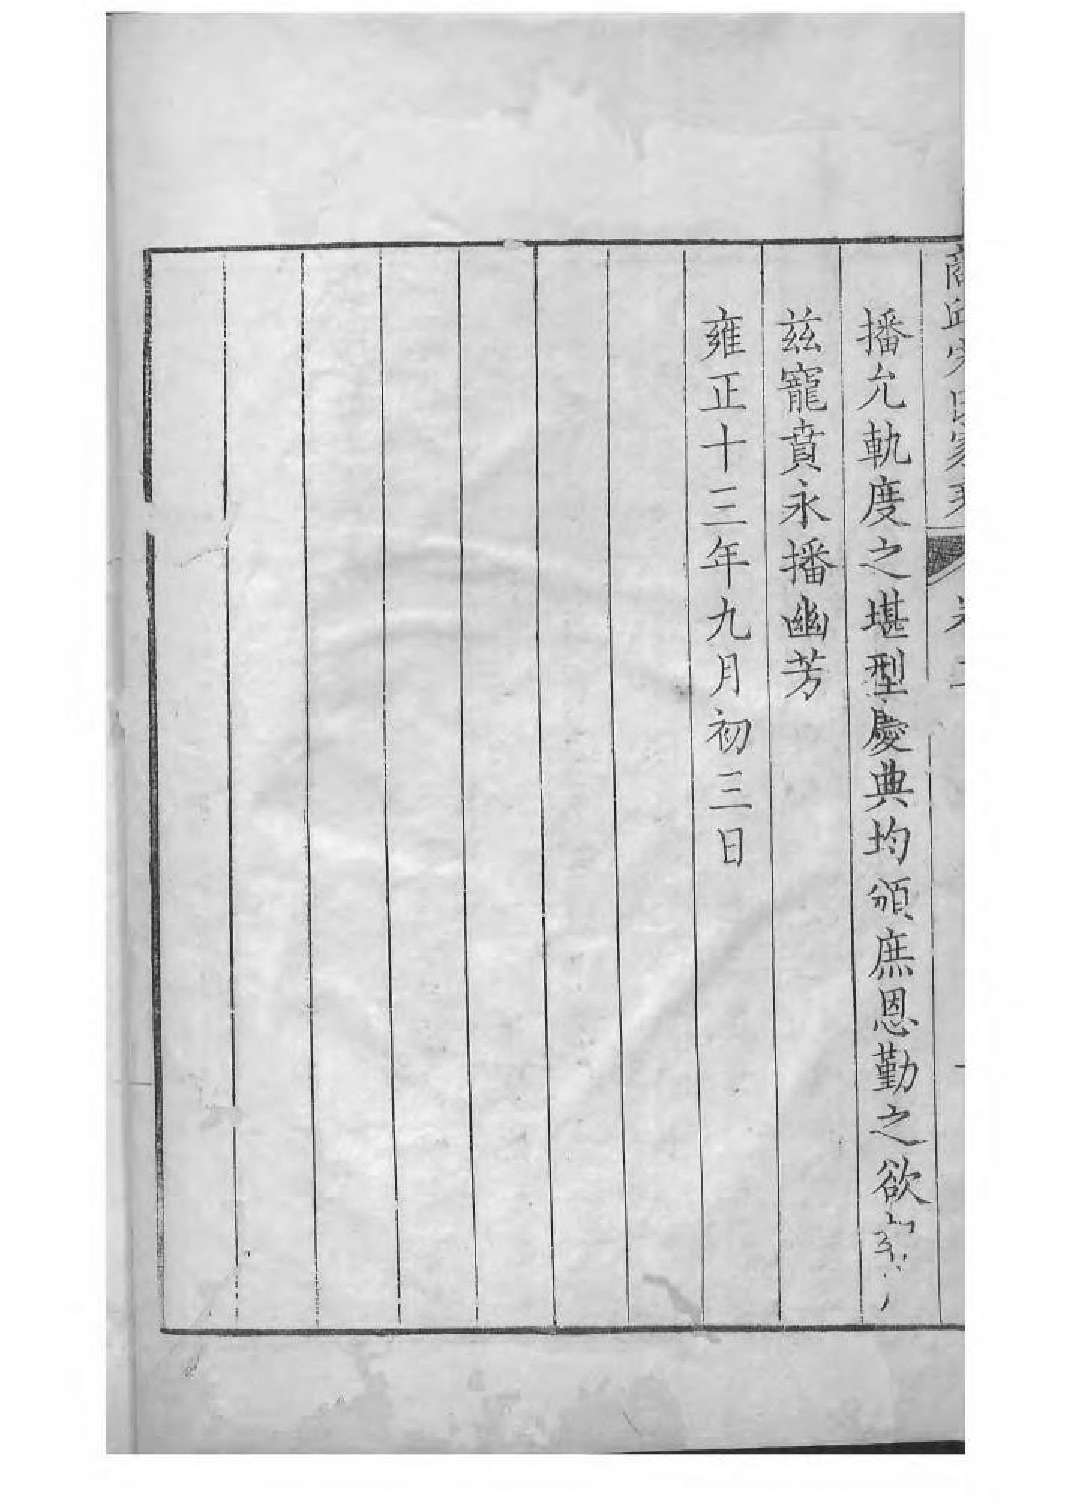 商邱宋氏家乘 卷二
播允軌度之堪型慶典均頒庶恩勤之欲
兹寵賁永播幽芳
雍正十三年九月初三日